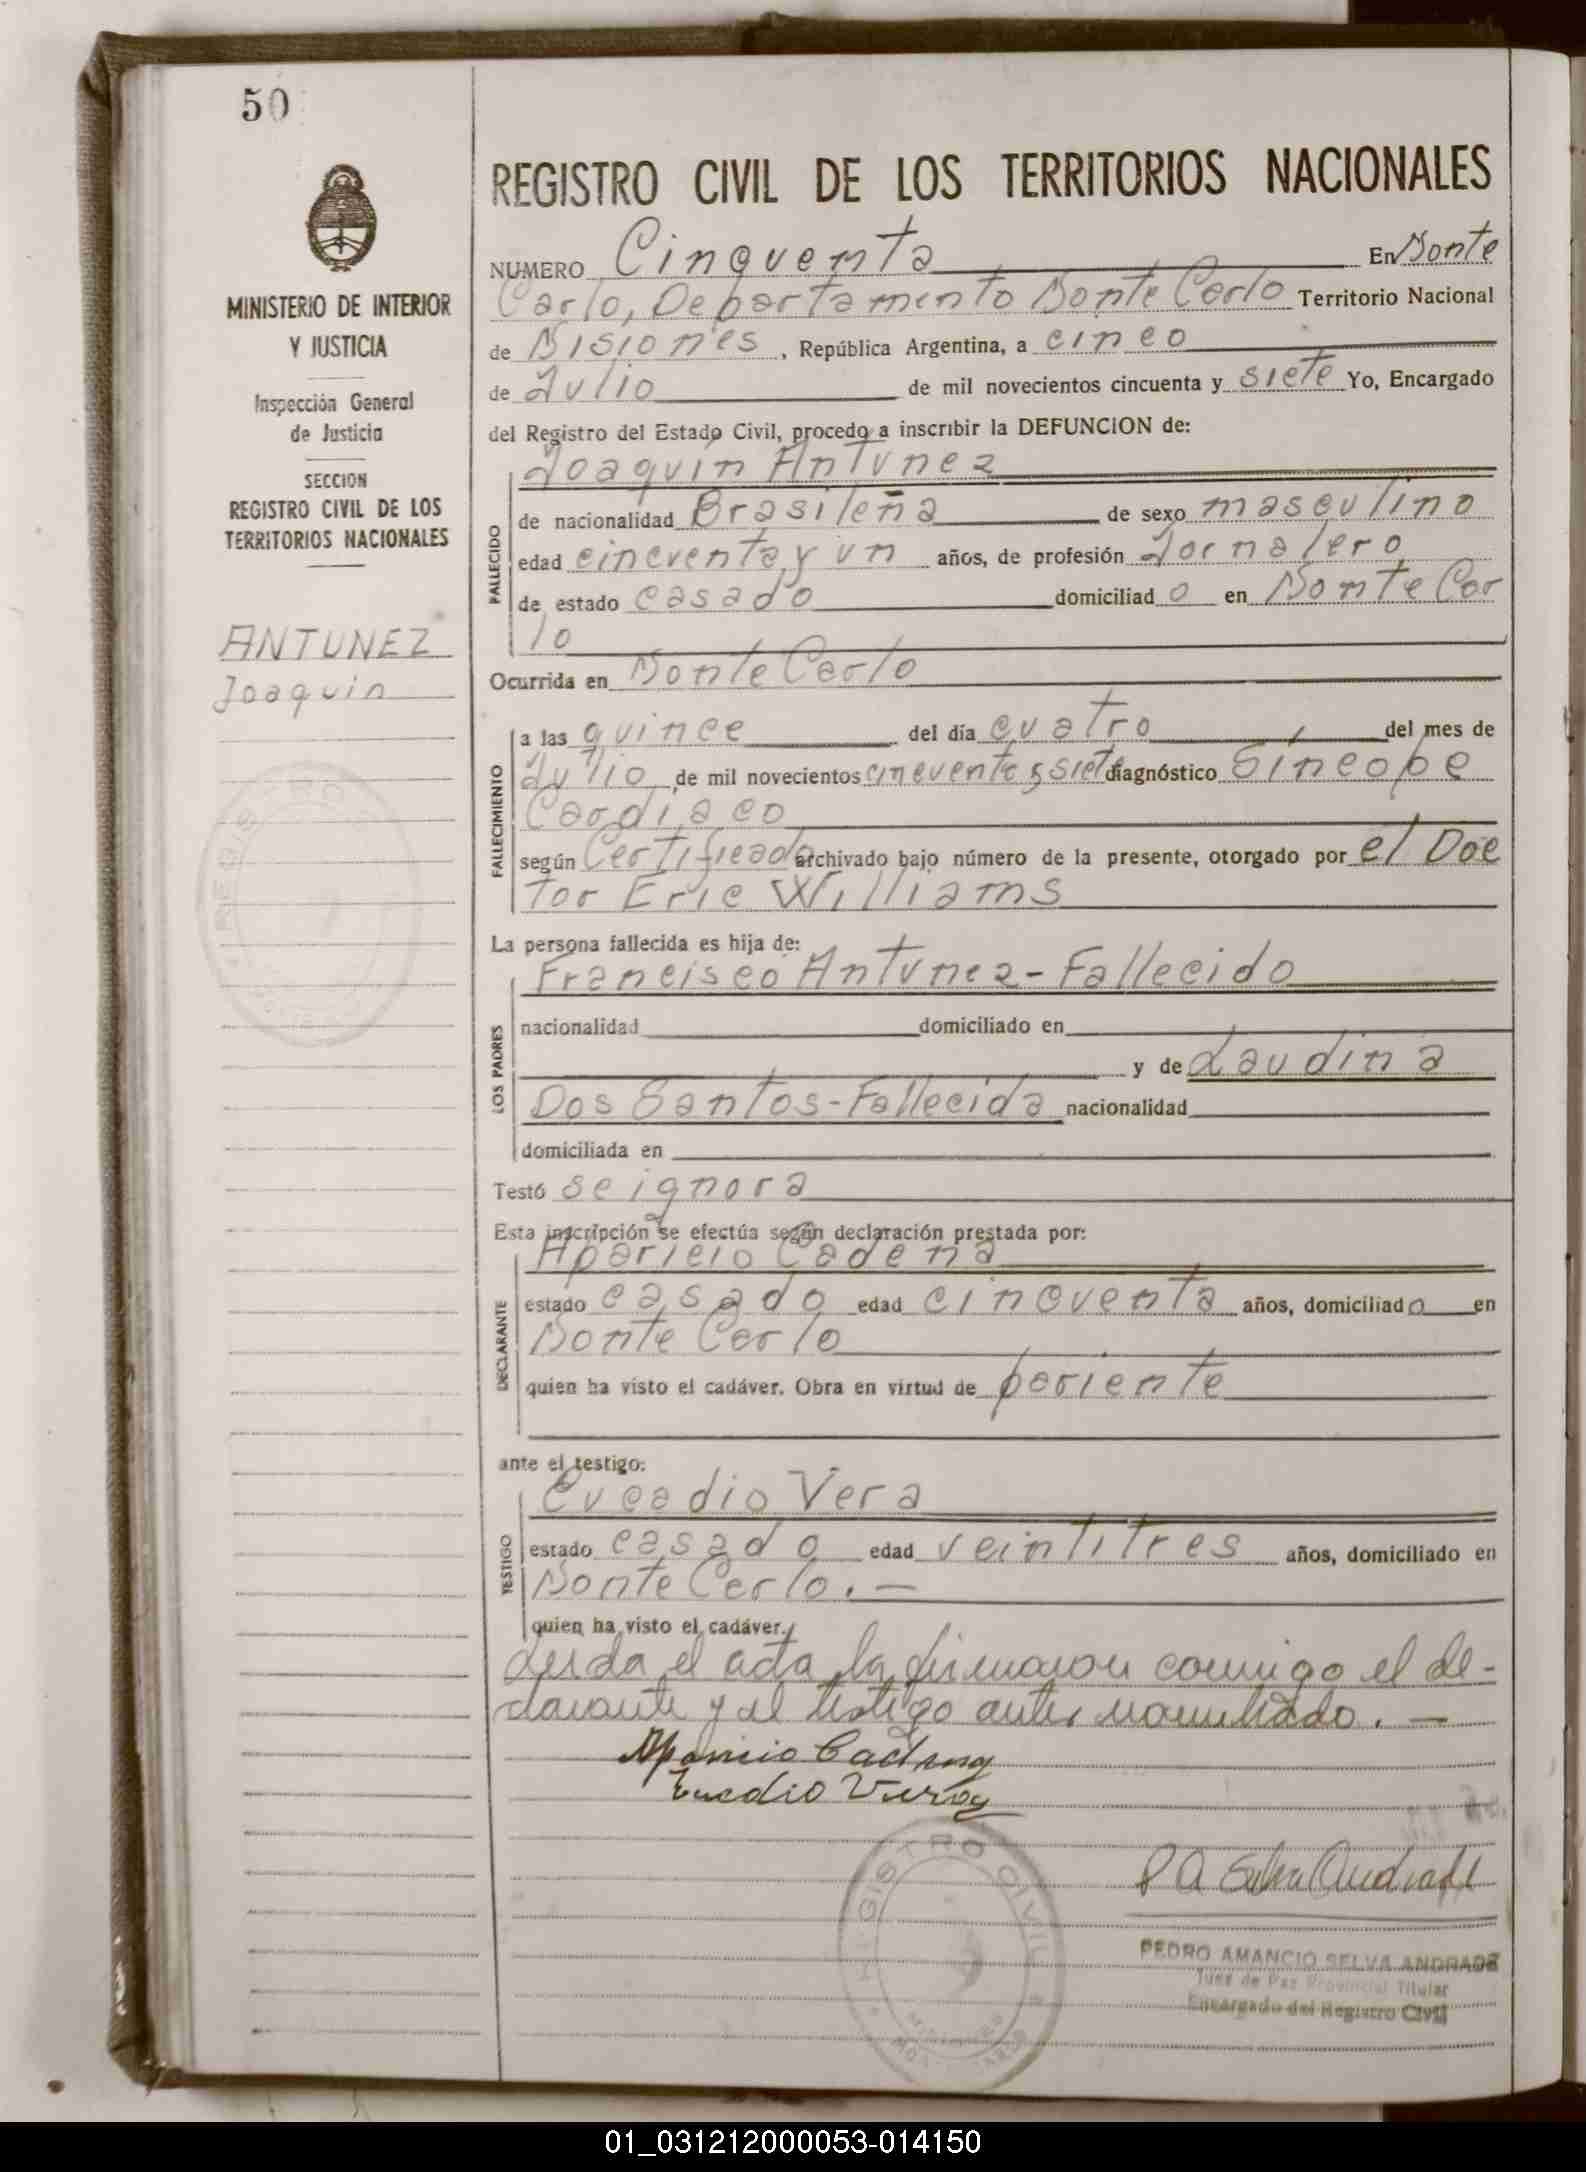 50
MINISTERIO DE INTERIOR
Y JUSTICIA
Inspección General
de Justicia
SECCION
REGISTRO CIVIL DE LOS
TERRITORIOS NACIONALES
ANTUNEZ
Joaquin
REGISTRO CIVIL DE LOS TERRITORIOS NACIONALES
NUMERO Cinquenta En Monte
Carlo, Departamento Monte Carlo Territorio Nacional
de Misiones, República Argentina, a cinco
de Julio de mil novecientos cincuenta y siete Yo, Encargado
del Registro del Estado Civil, procedo a inscribir la DEFUNCION de:
Joaquín Antunez
de nacionalidad Brasileña de sexo masculino
FALLECIDO
edad cincuenta y un años, de profesión Jornalero
de estado casado domiciliado en Monte Car
lo
Ocurrida en Monte Carlo
a las quince del día cuatro del mes de
FALLECIMIENTO
Julio de mil novecientos cincuenta y siete diagnóstico Síncope
Cardíaco
según Certificado archivado bajo número de la presente, otorgado por el Doc
tor Eric Williams
La persona fallecida es hija de:
Francisco Antunez - Fallecido
LOS PADRES
nacionalidad domiciliado en
y de Laudina
Dos Santos - Fallecida nacionalidad
domiciliada en
Testó se ignora
Esta inscripción se efectúa según declaración prestada por:
Aparicio Cadena
DECLARANTE
estado casado edad cincuenta años, domiciliado en
Monte Carlo
quien ha visto el cadáver. Obra en virtud de pariente
ante el testigo:
Eucadio Vera
TESTIGO
estado casado edad veintitres años, domiciliado en
Monte Carlo. —
quien ha visto el cadáver.
Leida el acta la firmaron conmigo el de-
clarante y el testigo antes nombrado. —
Aparicio Cadena
Eucadio Vera
REGISTRO CIVIL
MISIONES
P A Selva Andrade
PEDRO AMANCIO SELVA ANDRADE
Juez de Paz Provincial Titular
Encargado del Registro Civil
01_031212000053-014150